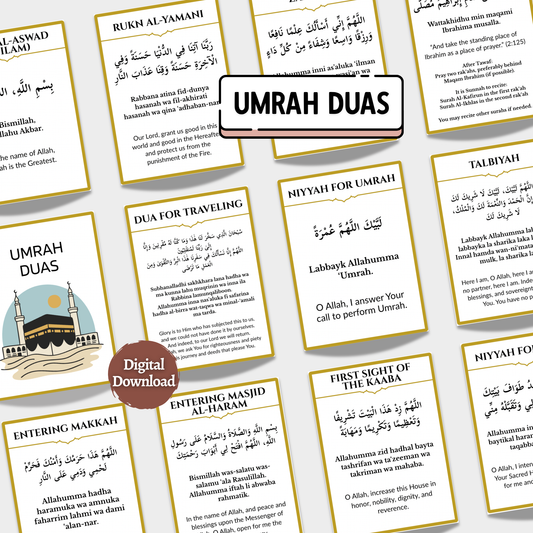 AL-ASWAD
بِسْمِ اللَّهِ، اللَّهُ
Bismillah,
Allahu Akbar.
the name of Allah,
ah is the Greatest.
RUKN AL-YAMANI
رَبَّنَا آتِنَا فِي الدُّنْيَا حَسَنَةً وَفِي
الْآخِرَةِ حَسَنَةً وَقِنَا عَذَابَ النَّارِ
Rabbana atina fid-dunya
hasanah wa fil-akhirati
hasanah wa qina 'adhaban-nar
Our Lord, grant us good in this
world and good in the Hereafter
and protect us from the
punishment of the Fire.
اللَّهُمَّ إِنِّي أَسْأَلُكَ عِلْمًا نَافِعًا
وَرِزْقًا وَاسِعًا وَشِفَاءً مِنْ كُلِّ دَاءٍ
Allahumma inni as'aluka 'ilman
Wattakhidhu min maqami
Ibrahima musalla.
"And take the standing place of
Ibrahim as a place of prayer." (2:125)
After Tawaf:
Pray two rak'ahs, preferably behind
Maqam Ibrahim (if possible).
It is Sunnah to recite:
Surah Al-Kafirun in the first rak'ah
Surah Al-Ikhlas in the second rak'ah
You may recite other surahs if needed.
UMRAH DUAS
UMRAH
DUAS
DUA FOR TRAVELING
سُبْحَانَ الَّذِي سَخَّرَ لَنَا هَذَا وَمَا كُنَّا لَهُ مُقْرِنِينَ وَإِنَّا
إِلَى رَبِّنَا لَمُنْقَلِبُونَ
اللَّهُمَّ إِنَّا نَسْأَلُكَ فِي سَفَرِنَا هَذَا الْبِرَّ وَالتَّقْوَى وَمِنَ
الْعَمَلِ مَا تَرْضَى
Subhanalladhi sakhkhara lana hadha wa
ma kunna lahu muqrinin wa inna ila
Rabbina lamunqaliboon
Allahumma inna nas'aluka fi safarina
hadha al-birra wat-taqwa wa minal-'amali
ma tarda.
Glory is to Him who has subjected this to us,
and we could not have done it by ourselves.
And indeed, to our Lord we will return.
we ask You for righteousness and piety
this journey and deeds that please You.
NIYYAH FOR UMRAH
لَبَّيْكَ اللَّهُمَّ عُمْرَةً
Labbayk Allahumma
'Umrah.
O Allah, I answer Your
call to perform Umrah.
TALBIYAH
اللَّهُمَّ لَبَّيْكَ، لَبَّيْكَ لَا شَرِيكَ لَكَ
إِنَّ الْحَمْدَ وَالنِّعْمَةَ لَكَ وَالْمُلْكَ،
لَا شَرِيكَ لَكَ
Labbayk Allahumma
labbayka la sharika laka
Innal hamda wan-ni'mata
mulk, la sharika
Here I am, O Allah, here I
no partner, here I am. Indeed
blessings, and sovereignty
You. You have no
Digital
Download
ENTERING MAKKAH
اللَّهُمَّ هَذَا حَرَمُكَ وَأَمْنُكَ فَحَرِّمْ
لَحْمِي وَدَمِي عَلَى النَّارِ
Allahumma hadha
haramuka wa amnuka
faharrim lahmi wa dami
'alan-nar.
ENTERING MASJID
AL-HARAM
بِسْمِ اللَّهِ وَالصَّلَاةُ وَالسَّلَامُ عَلَى رَسُولِ
اللَّهِ، اللَّهُمَّ افْتَحْ لِي أَبْوَابَ رَحْمَتِكَ
Bismillah was-salatu was-
salamu 'ala Rasulillah.
Allahumma iftah li abwaba
rahmatik.
In the name of Allah, and peace and
blessings upon the Messenger of
O Allah, open for me the
FIRST SIGHT OF
THE KAABA
اللَّهُمَّ زِدْ هَذَا الْبَيْتَ تَشْرِيفًا
وَتَعْظِيمًا وَتَكْرِيمًا وَمَهَابَةً
Allahumma zid hadhal bayta
tashrifan wa ta'zeeman wa
takriman wa mahaba.
O Allah, increase this House in
honor, nobility, dignity, and
reverence.
NIYYAH FO
طَوَافَ بَيْتِكَ
لِي وَتَقَبَّلْهُ مِنِّي
Allahumma in
baytikal haram
taqabba
O Allah, I inten
Your Sacred H
for me and